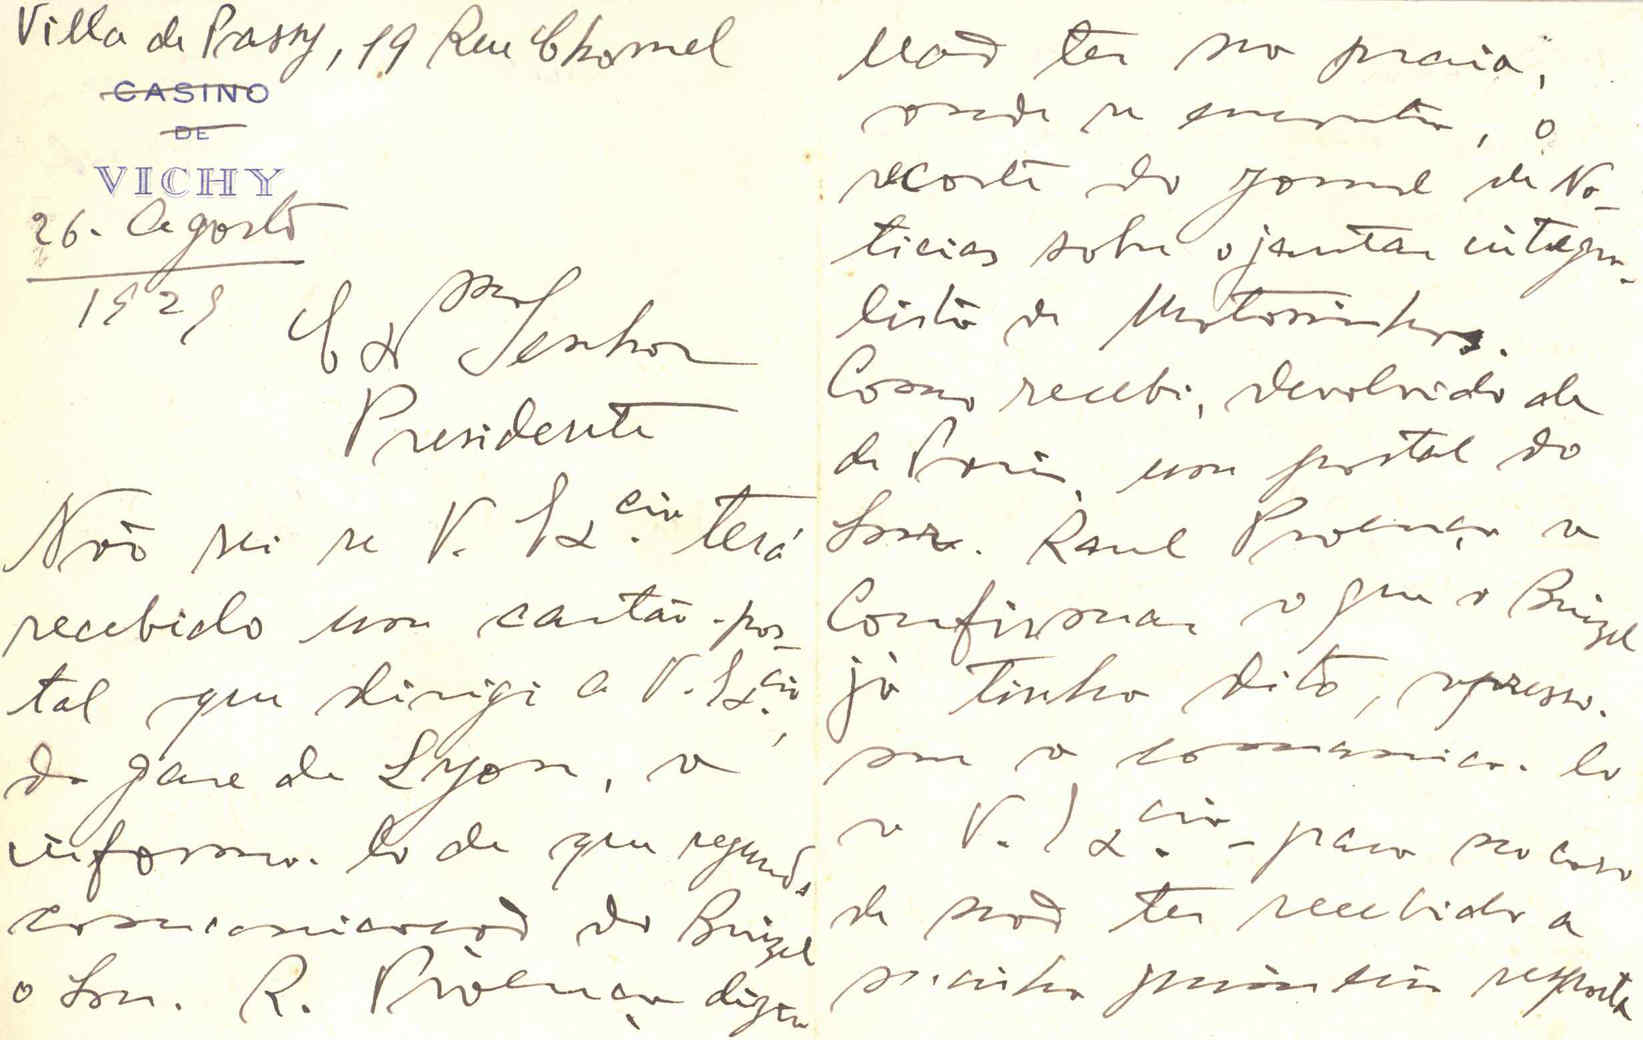 Villa de Passy, 19 Rue Chomel
CASINO
DE
VICHY
26. Agosto
1929
Ex.mo Senhor
Presidente
Não sei se V. Ex.cia terá
recebido um cartão-pos-
tal que dirigi a V. Ex.cia,
da gare de Lyon, a
informa-lo de que segundo
comunicação do Brizel
o Snr. R. Proença diz
não ter na praia,
onde se encontra, o
recorte do jornal de No-
ticias sobre o jantar integra-
lista de Matosinhos.
Como recebi, devolvido de
de Paris, um postal do
Snr. Raul Proença a
Confirmar o que o Brizel
já tinha dito, apresso-
me a comunica-lo
a V. Ex.cia - para no caso
de não ter recebido a
minha primeira resposta